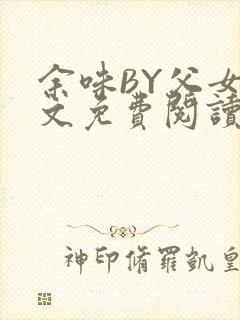 余味BY父女
文免費閱讀
神印脩羅凱皇